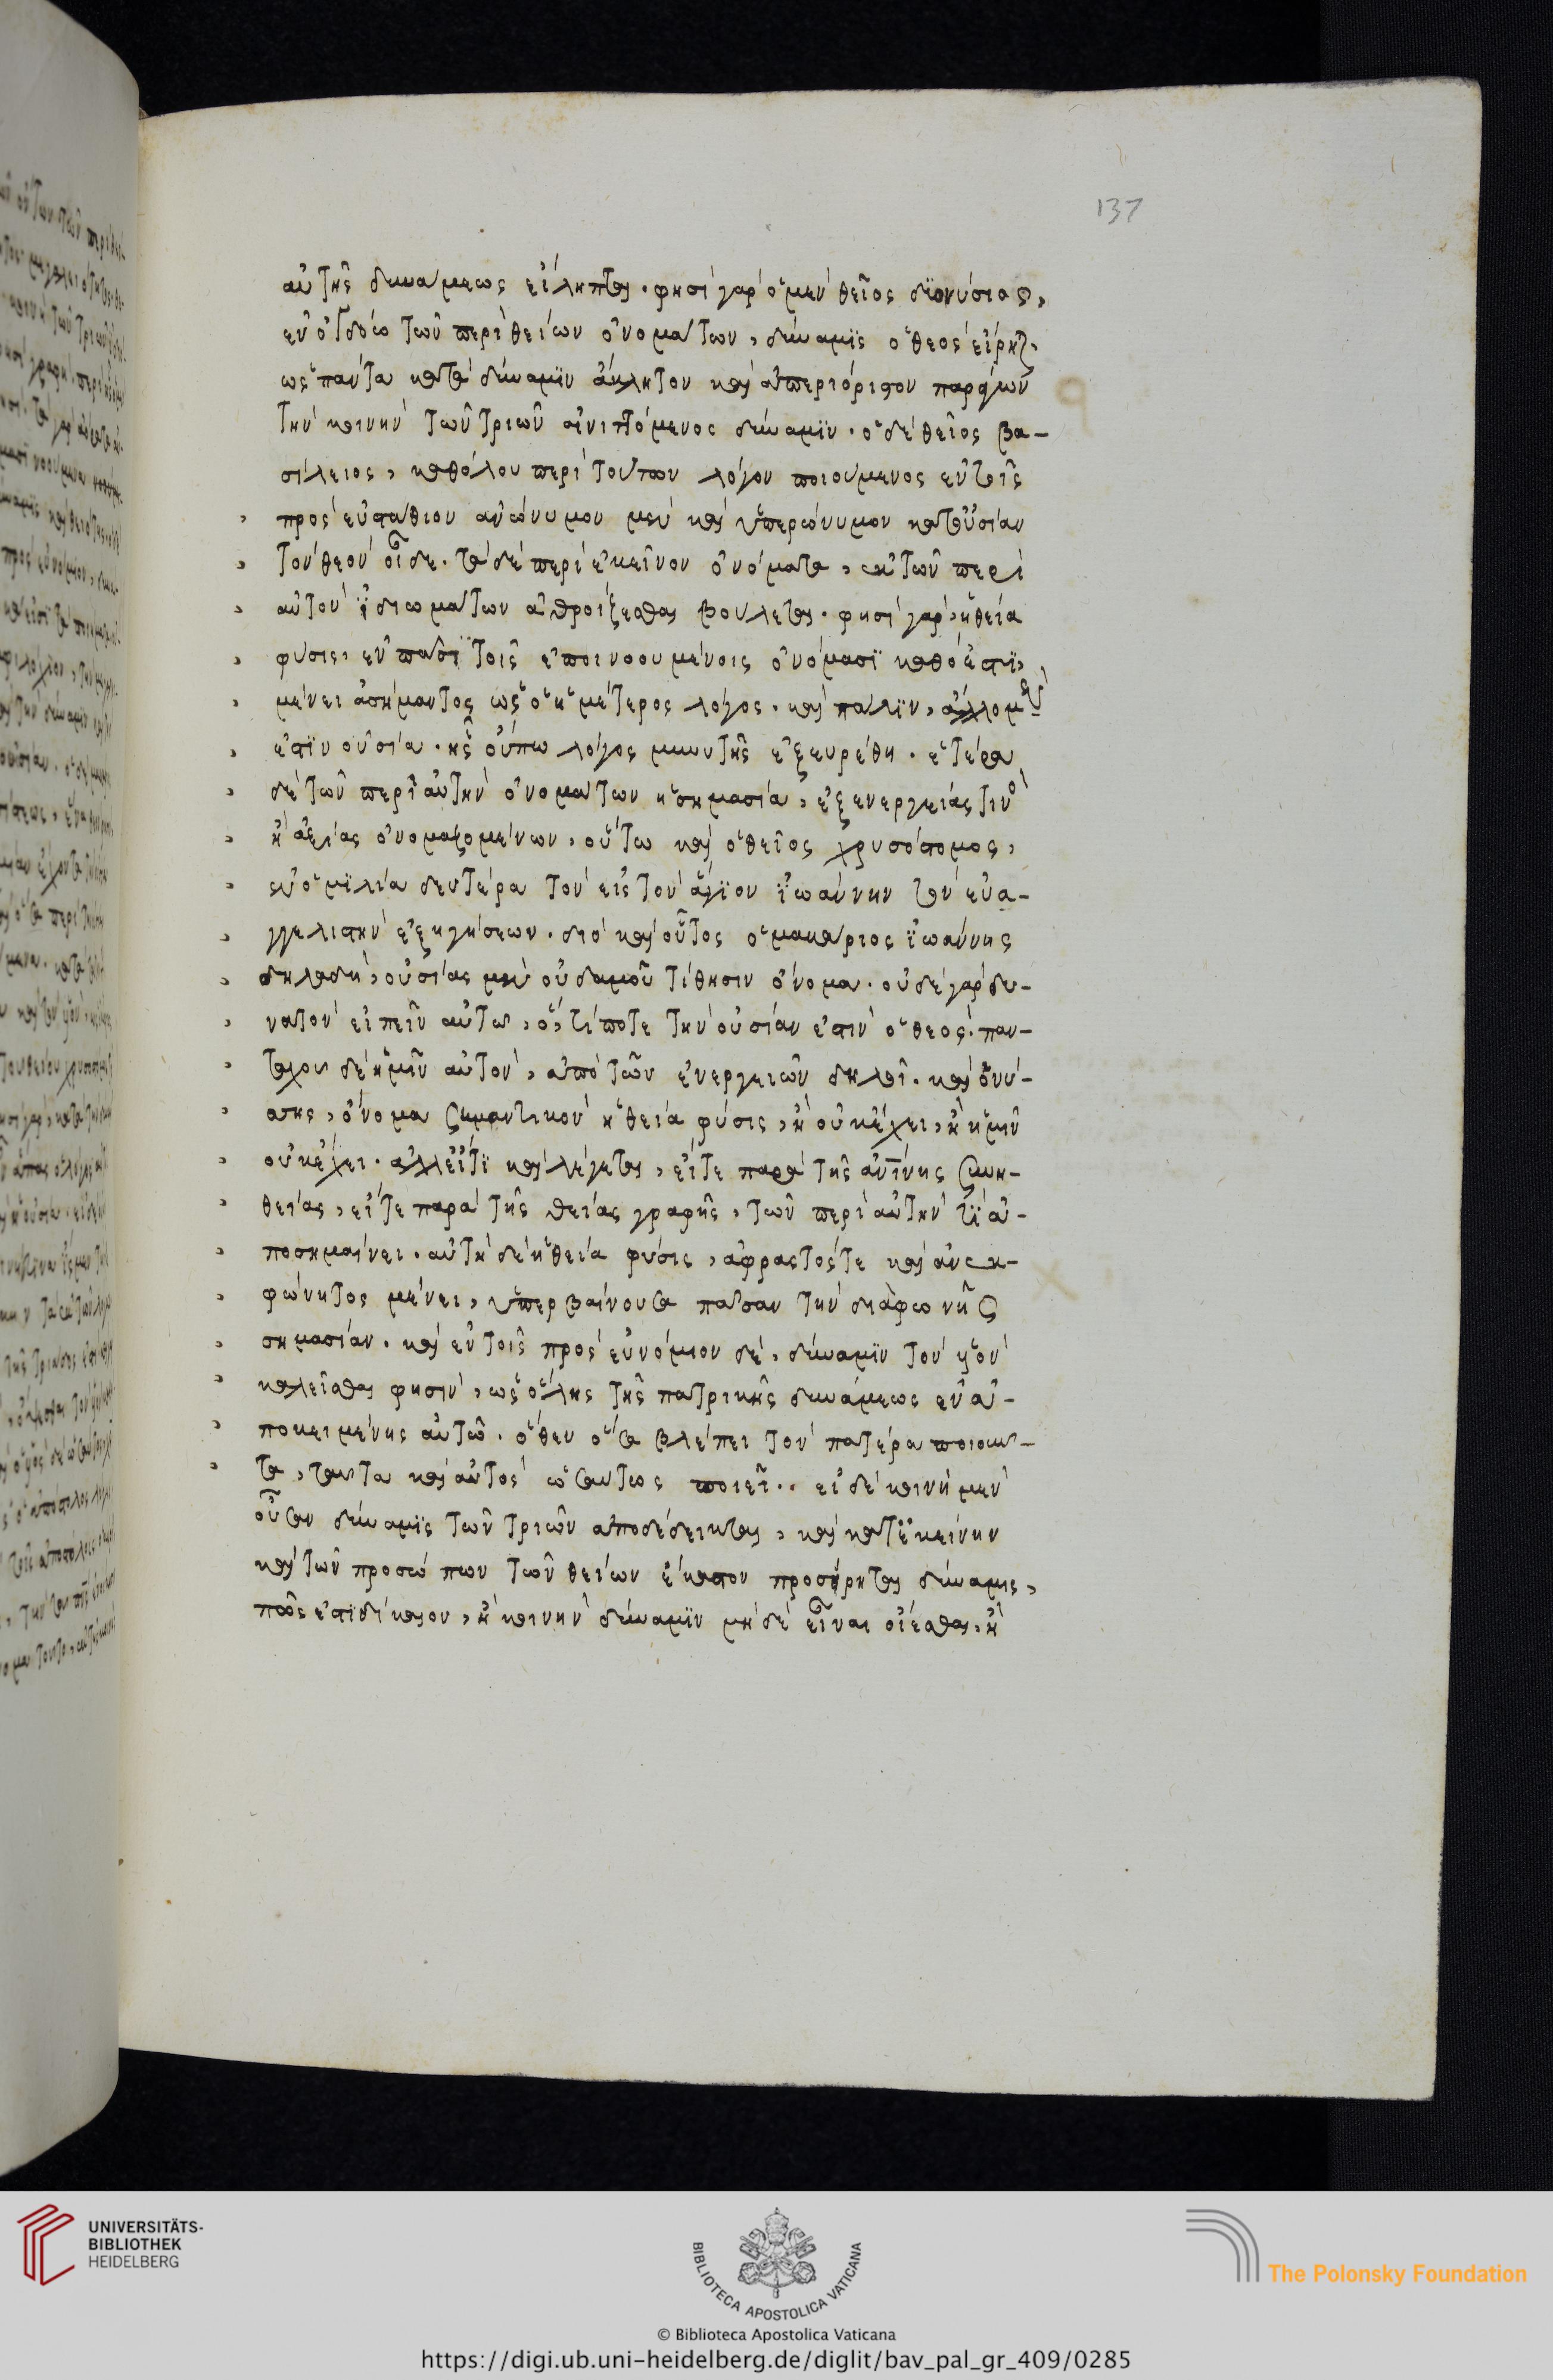 137
αὐτῆς δυνάμεως εἴληπται. φησὶ γὰρ ὁ μὲν θεῖος διονύσιος,
ἐν ὀγδόω τῶν περὶ θείων ὀνομάτων, δύναμις ὁ θεὸς εἴρηται
ὡς πάντα κατὰ δύναμϊν ἄκλητον καὶ ἀπεριόριστον παράγων
τὴν κοινὴν τῶν τριῶν αἰνιττόμενος δύναμϊν. ὁ δὲ θεῖος βα-
σίλειος, καθόλου περὶ τούτων λόγον ποιούμενος ἐν τοῖς
πρὸς εὐστάθιον ἀνώνυμον μὲν καὶ ὑπερώνυμον κατ' οὐσίαν
τὸν θεὸν οἶδε. τὰ δὲ περὶ ἐκεῖνον ὀνόματα, ἐκ τῶν περὶ
αὐτὸν ἰδιωμάτων ἀθροίζεσθαι βούλεται. φησὶ γὰρ, ἡ θεία
φύσις, ἐν πᾶσϊ τοῖς ἐπινοουμένοις ὀνόμασϊ καθό ἐστϊ,
μένει ἀσήμαντος ὡς ὁ ἡμέτερος λόγος. καὶ πάλϊν, ἄλλο μὲν
ἐστϊν οὐσία. ἧς οὔπω λόγος μηνυτὴς ἐξευρέθη. ἑτέρα
δὲ τῶν περὶ αὐτὴν ὀνομάτων ἡ σημασία, ἐξ ἐνεργείας τινὸς
ἢ ἀξίας ὀνομαζομένων. οὕτω καὶ ὁ θεῖος χρυσόστομος,
ἐν ὁμϊλία δευτέρα τῶν εἰς τὸν ἅγϊον ἰωάννην τὸν εὐα-
γγελιστὴν ἐξηγήσεων. διὸ καὶ οὗτος ὁ μακάριος ἰωάννης
δηλαδὴ, οὐσίας μὲν οὐδαμοῦ τίθησιν ὄνομα. οὐδὲ γὰρ δυ-
νατὸν εἰπεῖν αὐτῶ, ὅ,τί ποτε τὴν οὐσίαν ἐστὶν ὁ θεός. παν-
ταχοῦ δὲ ἡμῖν αὐτὸν, ἀπὸ τῶν ἐνεργειῶν δηλοῖ. καὶ ὁ νύ-
σσης, ὄνομα σημαντικὸν ἡ θεία φύσις, ἢ οὐκ ἔχει, ἢ ἡμῖν
οὐκ ἔχει. ἀλλ' εἴ τϊ καὶ λέγεται, εἴτε παρὰ τῆς ἀνθρωπίνης συνη-
θείας, εἴτε παρὰ τῆς θείας γραφῆς, τῶν περὶ αὐτήν τϊ ἀ-
ποσημαίνει. αὐτὴ δὲ ἡ θεία φύσις, ἄφραστός τε καὶ ἀνεκ-
φώνητος μένει, ὑπερβαίνουσα πᾶσαν τὴν διὰ φωνῆς
σημασίαν. καὶ ἐν τοῖς πρὸς εὐνόμιον δὲ, δύναμϊν τὸν υἱὸν
καλεῖσθαι φησὶν, ὡς ὅλης τῆς πατρικῆς δυνάμεως ἐνα-
ποκειμένης αὐτῶ. ὅθεν ὅσα βλέπει τὸν πατέρα ποιοῦν-
τα, ταῦτα καὶ αὐτὸς ὡσαύτως ποιεῖ.. εἰ δὲ κοινὴ μὲν
οὖσα δύναμϊς τῶν τριῶν ἀποδέδεικται, καὶ κατ' ἐκείνην
καὶ τῶν προσώπων τῶν θείων ἕκαστον προσείρηται δύναμις,
πῶς ἐστϊ δίκαιον, ἢ κοινὴν δύναμϊν μὴ δὲ εἶναι οἴεσθαι, ἢ
UNIVERSITÄTS-
BIBLIOTHEK
HEIDELBERG
BIBLIOTECA APOSTOLICA VATICANA
The Polonsky Foundation
© Biblioteca Apostolica Vaticana
https://digi.ub.uni-heidelberg.de/diglit/bav_pal_gr_409/0285